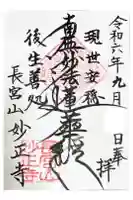 令和六年九月 日奉拝
現世安穏
南無妙法蓮華経
後生善処
長宮山 妙正寺